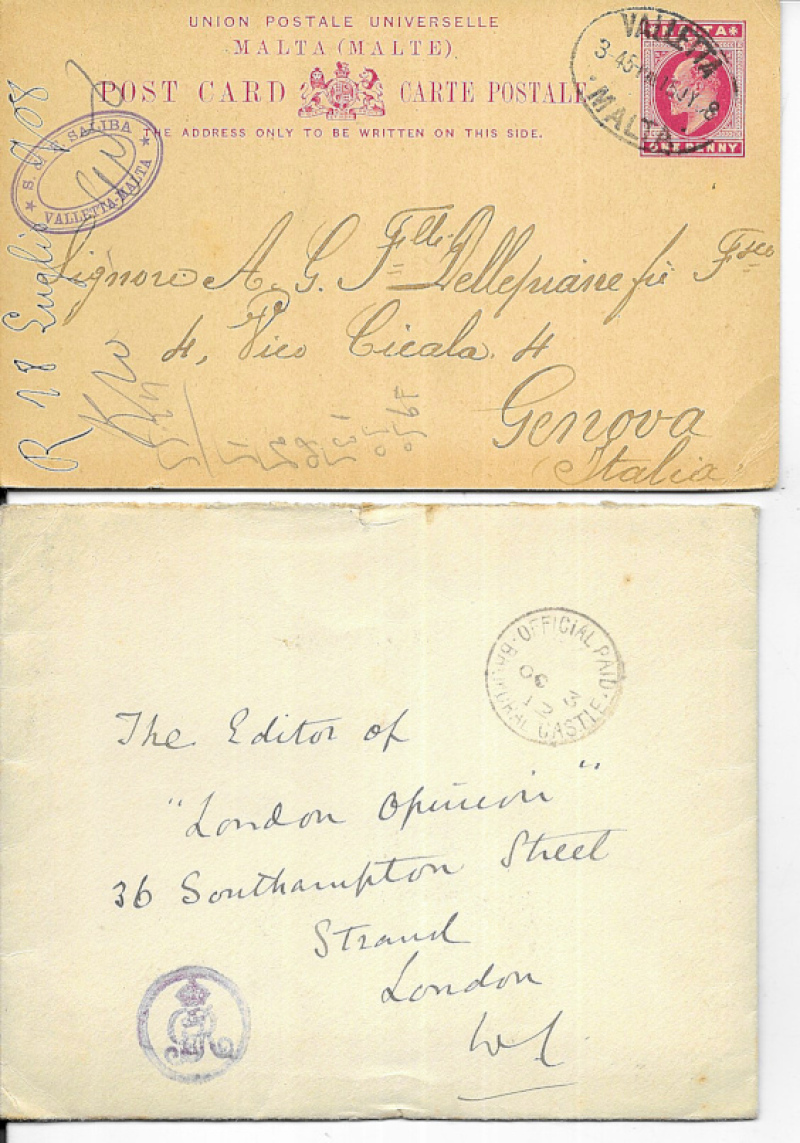 UNION POSTALE UNIVERSELLE
MALTA (MALTE)
POST CARD CARTE POSTALE
THE ADDRESS ONLY TO BE WRITTEN ON THIS SIDE.
MALTA
ONE PENNY
VALLETTA
3-45 PM 15 JY 8
MALTA
SALIBA
VALLETTA-MALTA
R 18 Luglio 908
Signore A. G. Flli Dellepiane fu Fsco
4, Vico Cicala 4
Genova
(Italia)
OFFICIAL PAID
CASTLE
The Editor of
"London Opinion"
36 Southampton Street
Strand
London
WC